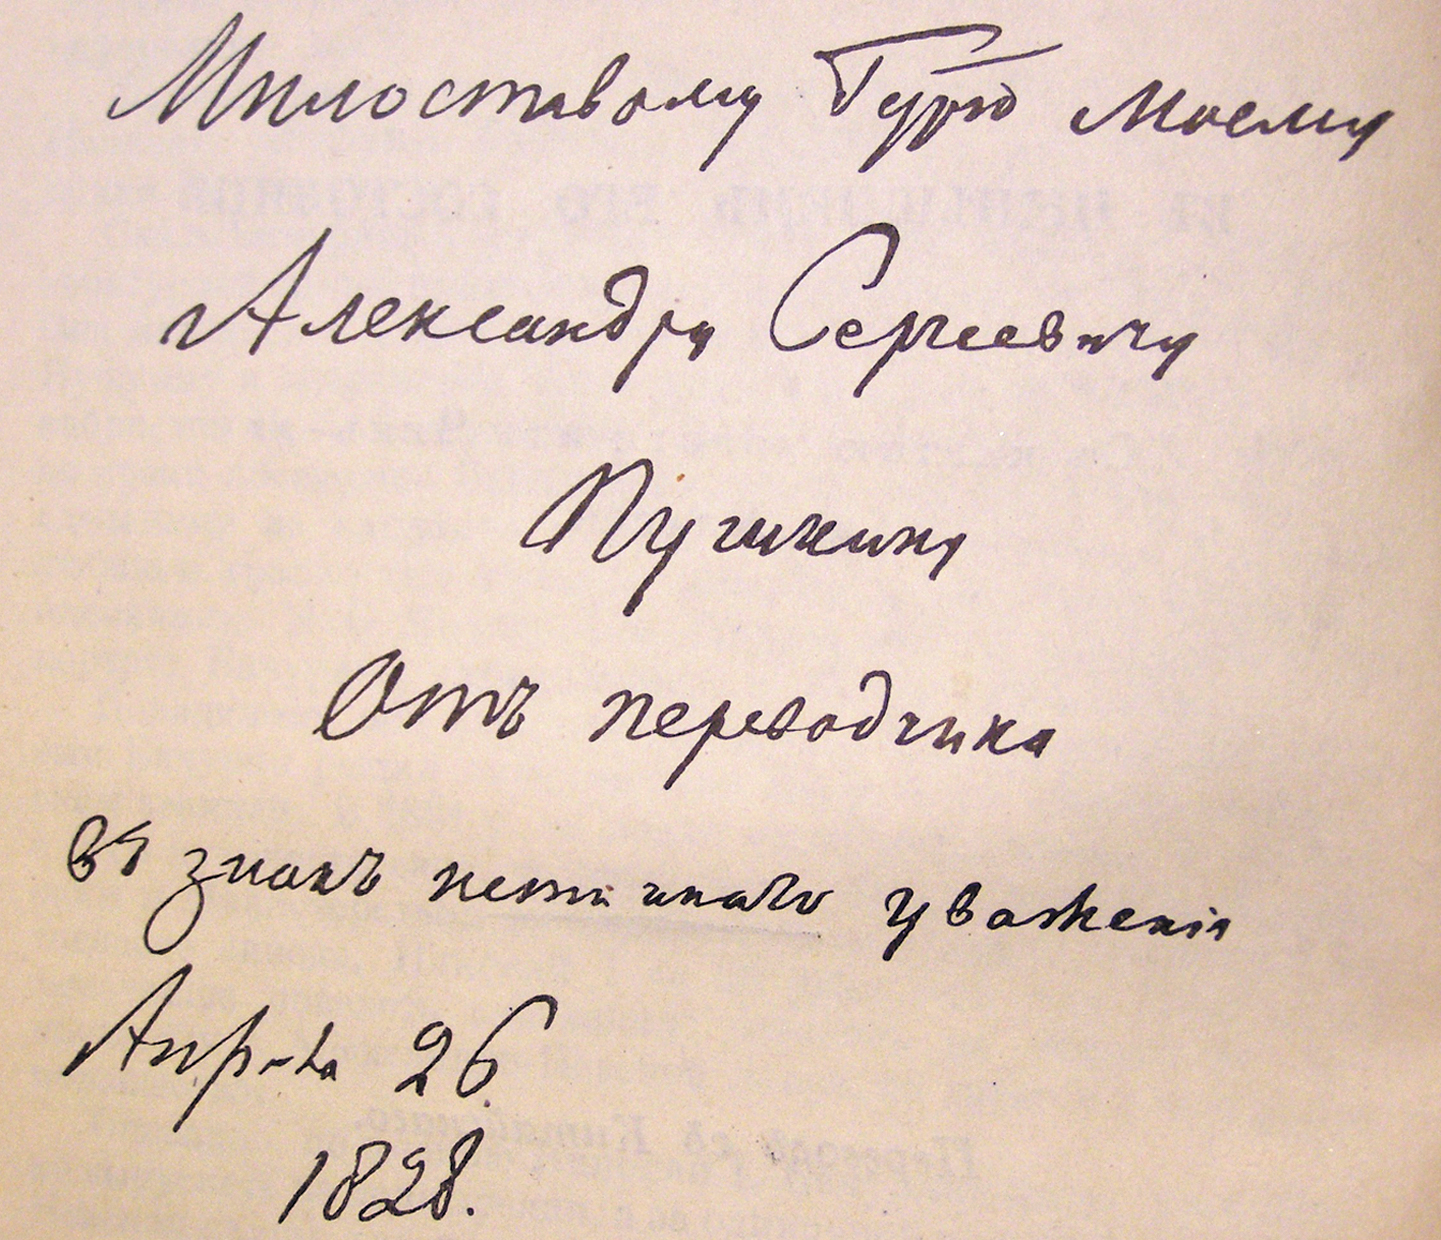 Милостивому Гдрю Моему
Александру Сергеевичу
Пушкину
Отъ переводчика
въ знакъ истиннаго уваженія
Апрѣля 26.
1828.